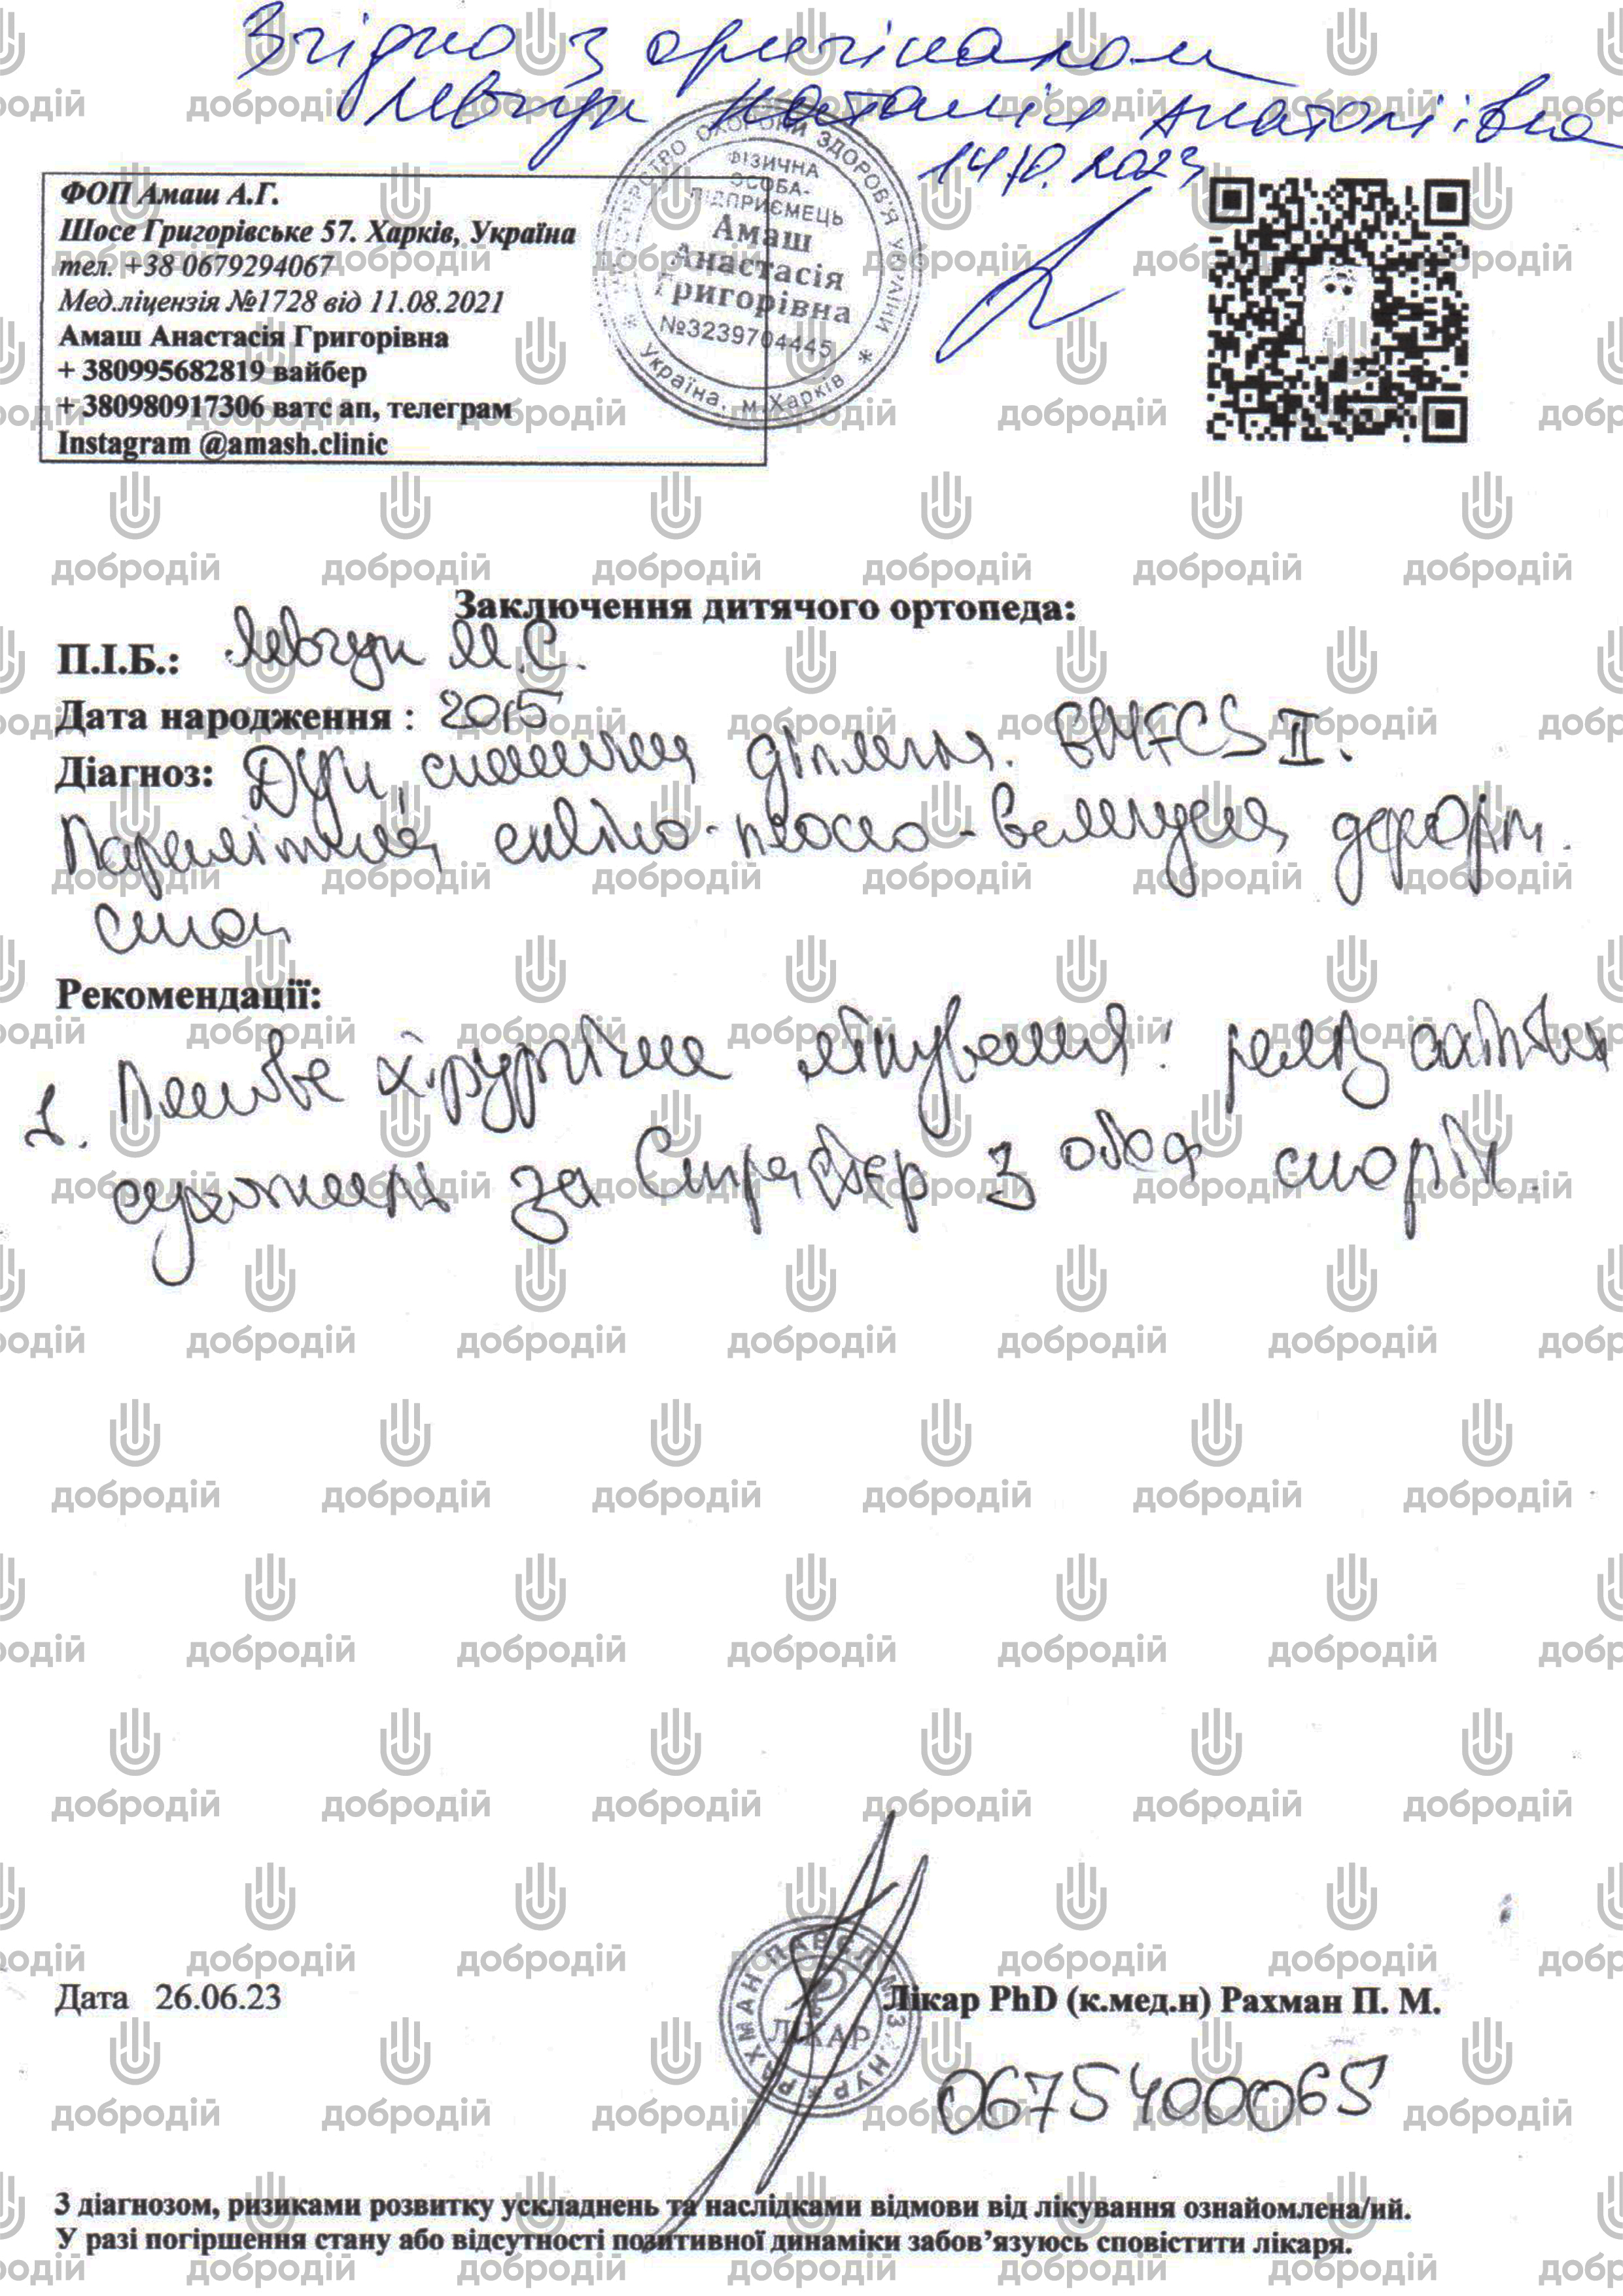 Згідно з оригіналом
Левчук Наталія Анатоліївна
14.10.2023
МІНІСТЕРСТВО ОХОРОНИ ЗДОРОВ'Я УКРАЇНИ
ФІЗИЧНА
ОСОБА-
ПІДПРИЄМЕЦЬ
Амаш
Анастасія
Григорівна
№3239704445
Україна, м.Харків
ФОП Амаш А.Г.
Шосе Григорівське 57. Харків, Україна
тел. +38 0679294067
Мед.ліцензія №1728 від 11.08.2021
Амаш Анастасія Григорівна
+ 380995682819 вайбер
+ 380980917306 ватс ап, телеграм
Instagram @amash.clinic
Заключення дитячого ортопеда:
П.І.Б.: Левчук М.С.
Дата народження : 2015
Діагноз: ДЦП, спастична диплегія. GMFCS II.
Паралітична еквіно-плоско-вальгусна деформ.
стоп
Рекомендації:
1. Планове хірургічне лікування: реліз
сухожиль за Страєр з обох сторін.
Дата 26.06.23
РАХМАН ПАВЕЛ М.З.НУР
ЛІКАР
Лікар PhD (к.мед.н) Рахман П. М.
0675400065
З діагнозом, ризиками розвитку ускладнень та наслідками відмови від лікування ознайомлена/ий.
У разі погіршення стану або відсутності позитивної динаміки забов’язуюсь сповістити лікаря.
добродій